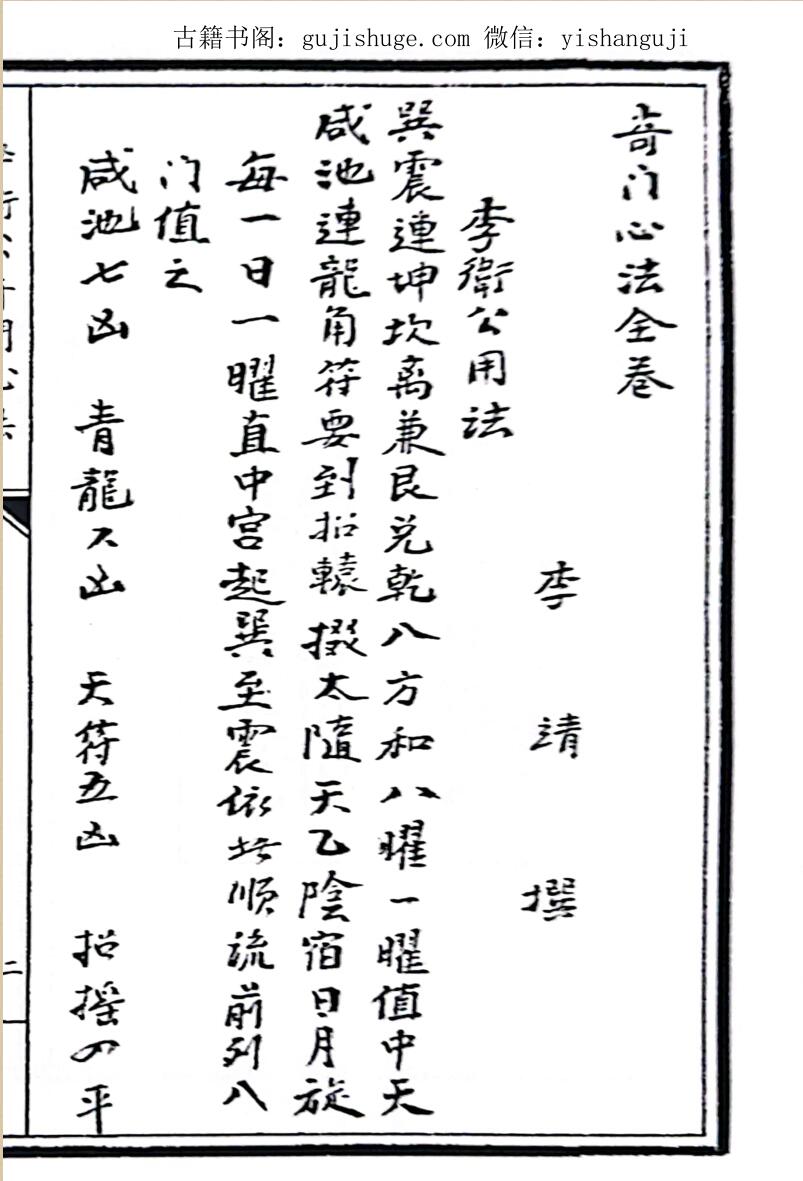 古籍书阁：gujishuge.com 微信：yishanguji
奇门心法全卷
李靖撰
李衛公用法
巽震連坤坎离兼艮兑乾八方和八曜一曜值中天
咸池連龍角符要到招轅摄太隨天乙陰宿日月旋
每一日一曜直中宫起巽至震依此順流前列八
门值之
咸池七凶 青龍六凶 天符五凶 招摇四平
二